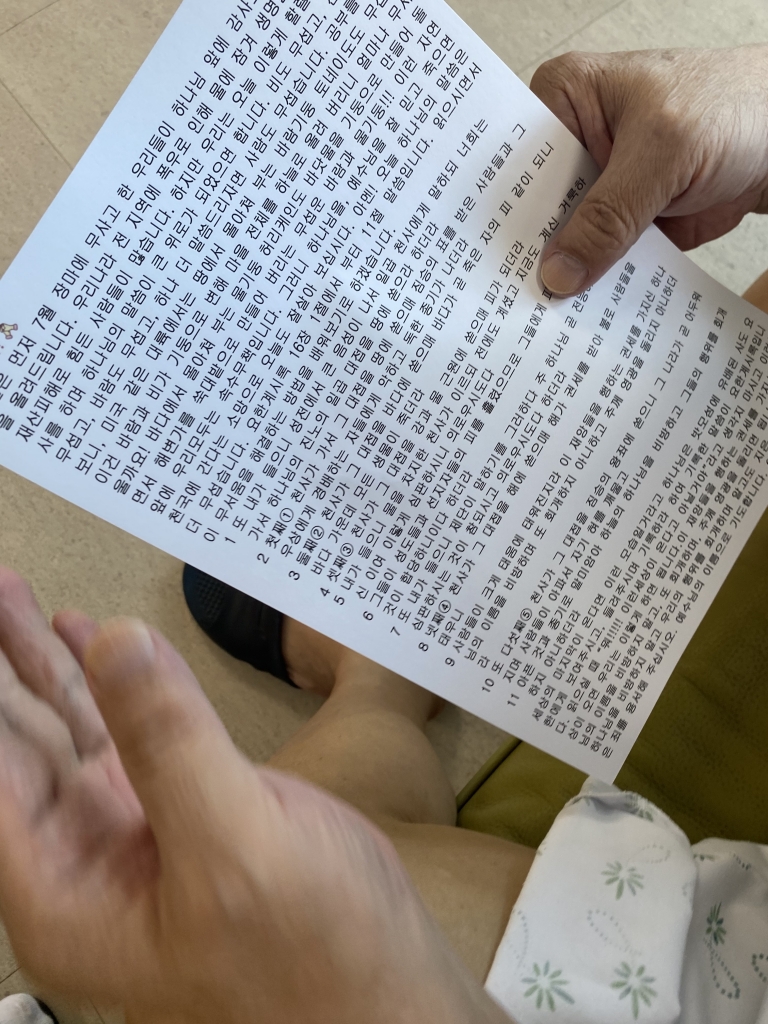 은 먼저 7월 장마에 무사고 한 우리들이 하나님 앞에 감사
을 올려드립니다. 우리나라 전 지역에 폭우로 인해 물에 잠겨 생명
재산피해로 힘든 사람들이 많습니다. 하지만 우리는 오늘 이렇게
사를 하며 하나님의 말씀이 큰 위로가 되었으면 합니다. 비도 무섭고,
무섭고, 바람도 무섭고, 하나 더 말씀드리자면 사람도 무섭습니다. 공부를
보니, 미국 같은 대륙에서는 땅에서 몰아쳐 부는 바람기둥 토네이도도
이런 바람과 비가 기둥으로 변해 마을 전체를 하늘로 올려 버리니 얼마나
울까요! 바다에서 몰아쳐 부는 물기둥 허리케인도 바닷물을 기둥으로 만들어
면서 해변가를 쑥대밭으로 만들어 버리는 무서운 바람과 물기둥!!! 이런 자연
앞에 우리모두는 속수무책입니다. 그러니 하나님을, 예수님을 잘 믿고 죽으면
천국에 간다는 소망으로 오늘도 잘살아 보십시다. 아멘! 오늘 하나님의 말씀은
더 무섭습니다. 요한계시록 16장 1절에서 부터, 11절 말씀입니다. 읽으시면서
이 무서움을 해결하는 방법을 배워보기로 하겠습니다.
1 또 내가 들으니 성전에서 큰 음성이 나서 일곱 천사에게 말하되 너희는
가서 하나님의 진노의 일곱 대접을 땅에 쏟으라 하더라
2 첫째① 천사가 가서 그 대접을 땅에 쏟으매 짐승의 표를 받은 사람들과 그
우상에게 경배하는 자들에게 악하고 독한 종기가 나더라
3 둘째② 천사가 그 대접을 바다에 쏟으매 바다가 곧 죽은 자의 피 같이 되니
바다 가운데 모든 생물이 죽더라
4 셋째③ 천사가 그 대접을 강과 물 근원에 쏟으매 피가 되더라
5 내가 들으니 물을 차지한 천사가 이르되 전에도 계셨고 지금도 계신 거룩하
신 이여 이렇게 심판하시니 의로우시도다
6 그들이 성도들과 선지자들의 피를 흘렸으므로 그들에게
것이 합당하니이다 하더라
7 또 내가 들으니 제단이 말하기를 그러하다 주 하나님 곧
심판하시는 것이 참되시고 의로우시도다 하더라
8 넷째④ 천사가 그 대접을 해에 쏟으매 해가 권세를 받아 불로 사람들을
태우니
9 사람들이 크게 태움에 태워진지라 이 재앙들을 행하는 권세를 가지신 하나
님의 이름을 비방하며 또 회개하지 아니하고 주께 영광을 돌리지 아니하더
라
10 또 다섯째⑤ 천사가 그 대접을 짐승의 왕좌에 쏟으니 그 나라가 곧 어두워
지며 사람들이 아파서 자기 혀를 깨물고
11 아픈 것과 종기로 말미암아 하늘의 하나님을 비방하고 그들의 행위를 회개
하지 아니하더라
세상의 마지막이 온다면 이런 모습일거라고 하나님은 밧모섬에 유배된 사도 요
한에게 보여주시고, 들려주시며 기록하라 하여 기록한 말씀이 요한계시록입니
다.